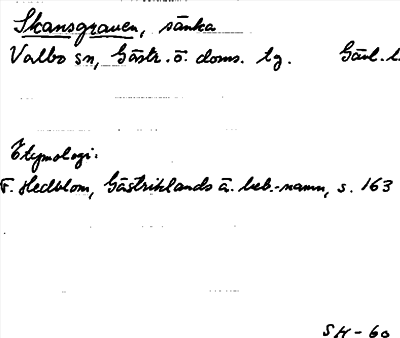 Skansgraven, sänka
Valbo sn, Gästr. ö. doms. tg. Gävl. l.
Etymologi.
F. Hedblom, Gästriklands ä. beb.-namn, s. 163
SH - 60